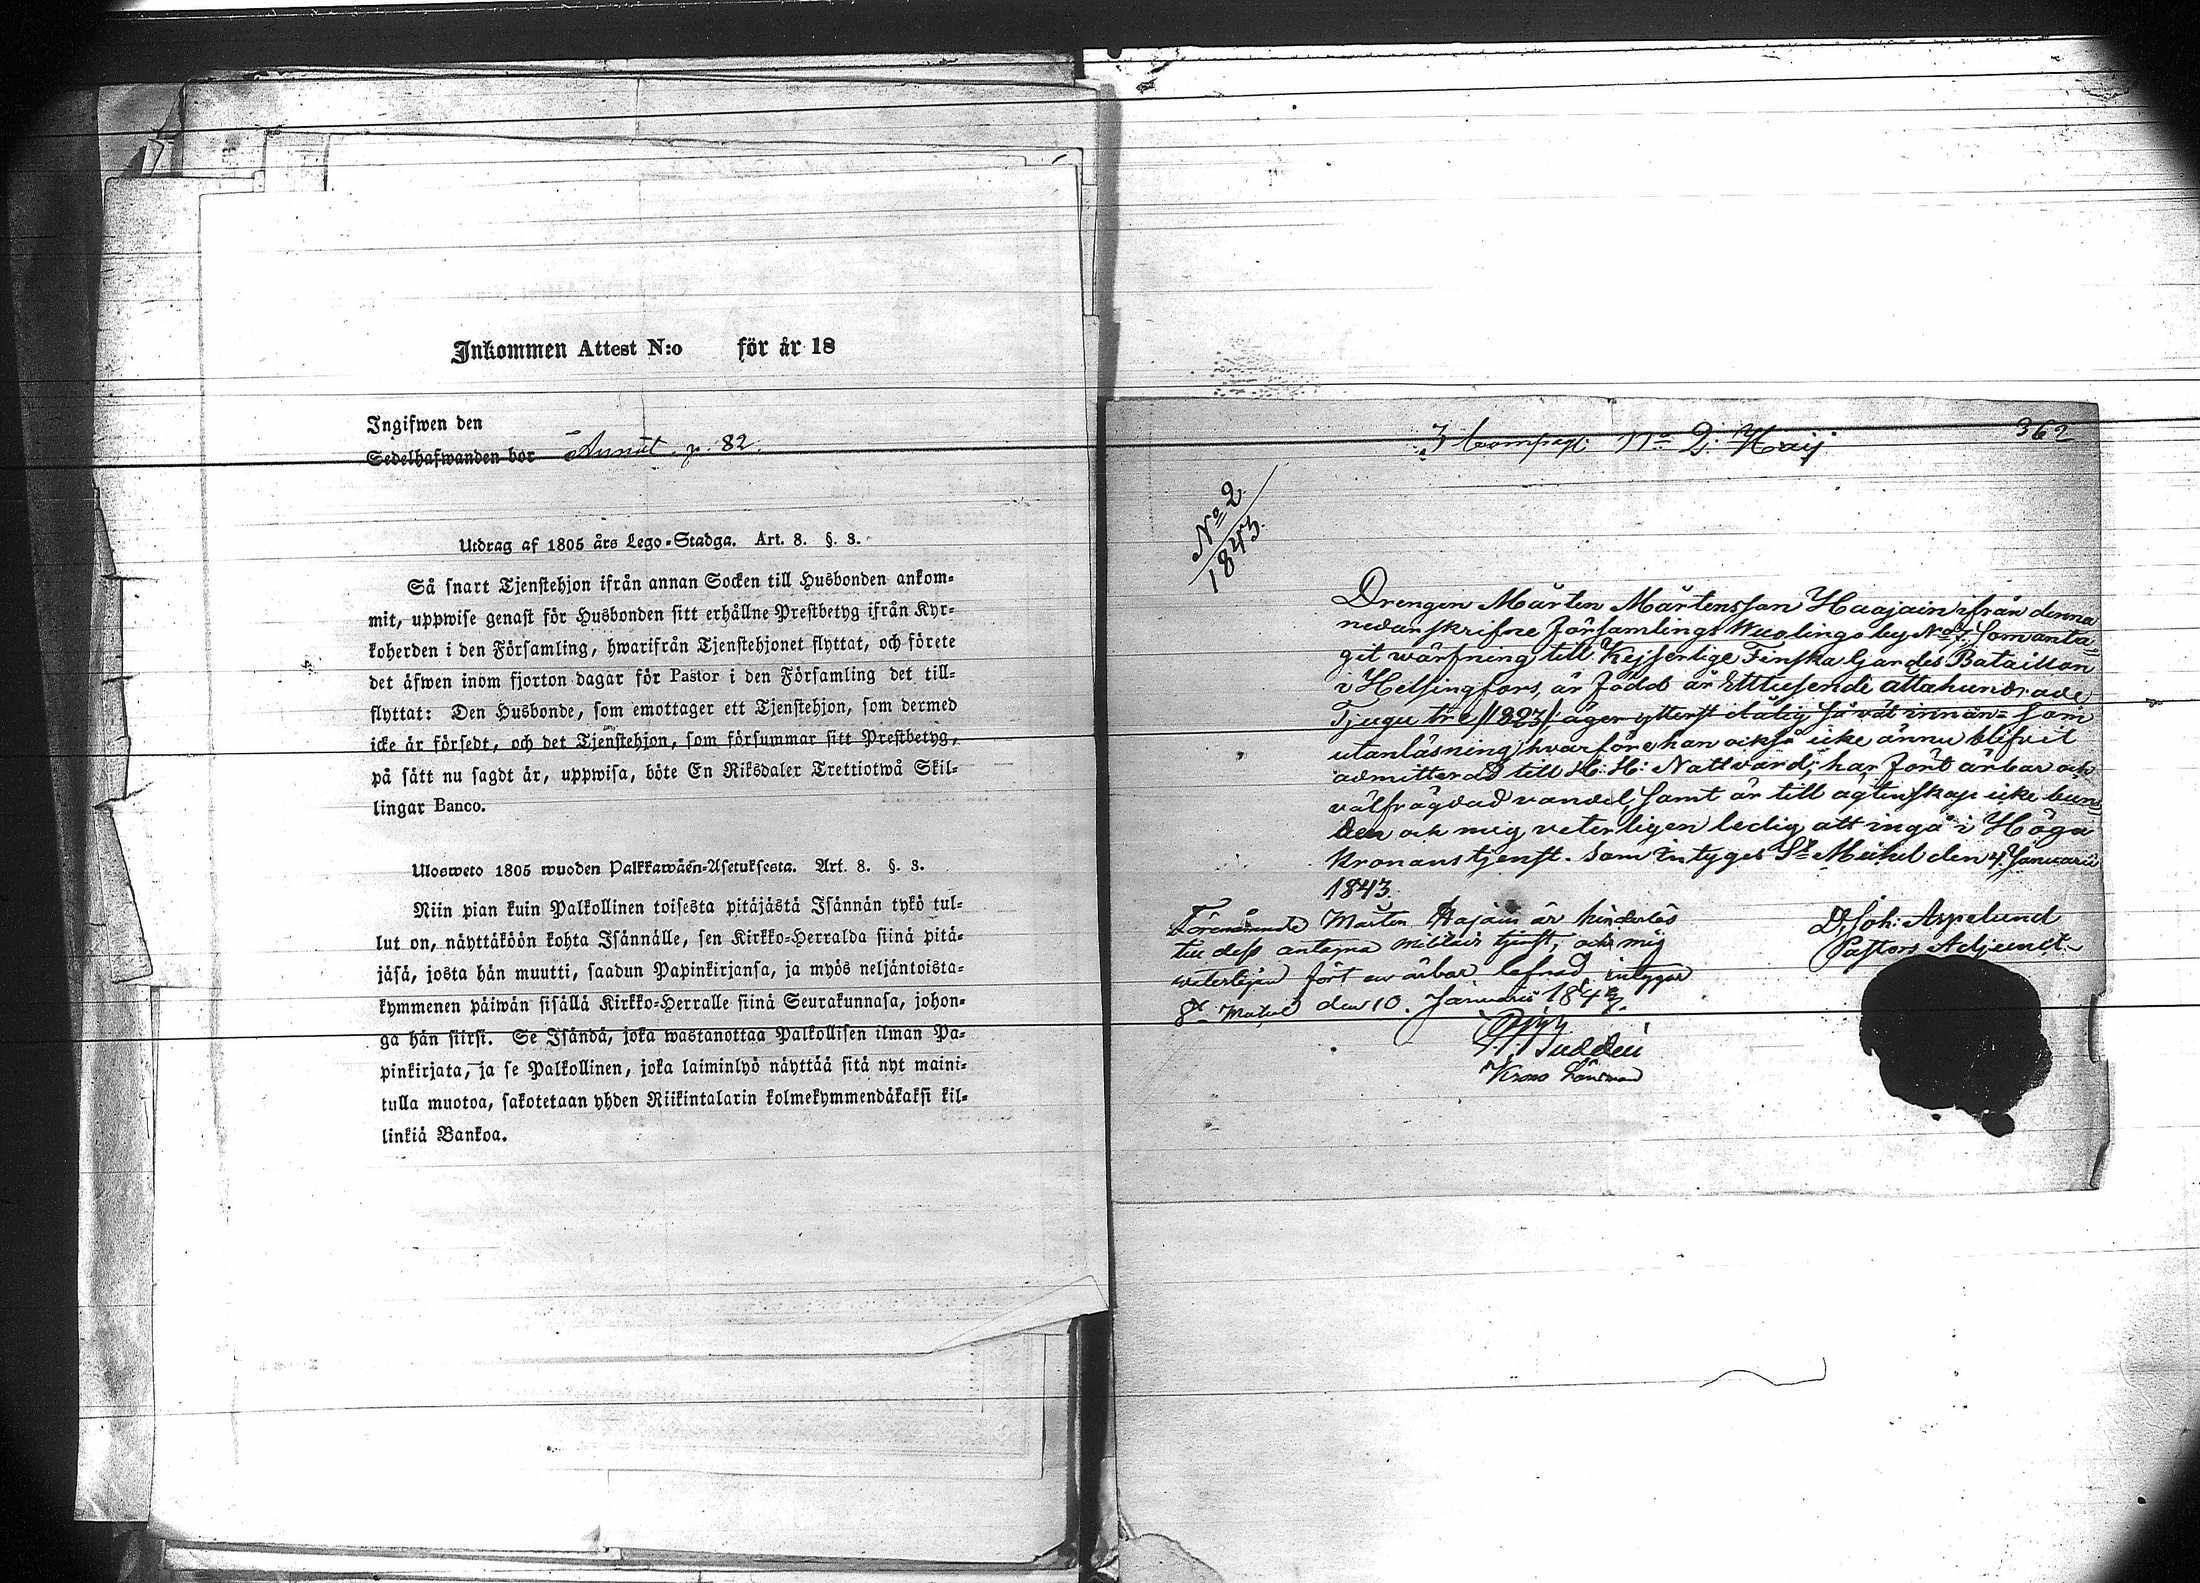 Inkommen Attest N:o för år 18
Ingifwen den
Sedelhafwanden bor Annut. p. 82.
Utdrag af 1805 års Lego-Stadga. Art. 8. §. 3.
Så snart Tjenstehjon ifrån annan Socken till Husbonden ankom-
mit, uppwise genast för Husbonden sitt erhållne Prestbetyg ifrån Kyr-
koherden i den Församling, hwarifrån Tjenstehjonet flyttat, och förete
det äfwen inom fjorton dagar för Pastor i den Församling det till-
flyttat: Den Husbonde, som emottager ett Tjenstehjon, som dermed
icke är försedt, och det Tjenstehjon, som försummar sitt Prestbetyg,
på sätt nu sagdt är, uppwisa, böte En Riksdaler Trettiotwå Skil-
lingar Banco.
Ulosweto 1805 wuoden Palkkawäen-Asetuksesta. Art. 8. §. 3.
Niin pian kuin Palkollinen toisesta pitäjästä Isännän tykö tul-
lut on, näyttäköön kohta Isännälle, sen Kirkko-Herralda siinä pitä-
jäsä, josta hän muutti, saadun Papinkirjansa, ja myös neljäntoista-
kymmenen päiwän sisällä Kirkko-Herralle siinä Seurakunnasa, johon-
ga hän siirsi. Se Isändä, joka wastanottaa Palkollisen ilman Pa-
pinkirjata, ja se Palkollinen, joka laiminlyö näyttää sitä nyt maini-
tulla muotoa, sakotetaan yhden Riikintalarin kolmekymmendäkaksi kil-
linkiä Bankoa.
362
3 Compagt: No 2. Haij
No 2
1843.
Drengen Mårten Mårtensson Haajain ifrån denna
nedanskrifne församlings Wuolingo by No 7. som anta-
git wärfning till Kejserlige Finska Gardes Bataillon
i Helsingfors, är född år Ettusende åttahundrade
Tjugu tre /1823/ äger ytterst dålig så väl innan- som
utanläsning hvarföre han också icke ännu blifvit
admitterad till H: H: Nattvard; har fört ärbar och
välfrägdad vandel, samt är till ägtenskap icke bun-
den och mig veterligen ledig att ingå i Höga
Kronans tjenst. Som intygas St Michel den 4 Januarii
1843.
D. Joh: Aspelund
Pastors Adjunct.
Förenämnde Mårten Hajain är hinderlös
till dess antagna militair tjenst, och mig
veterligen fört en ärbar lefnad, intygar
St Michel den 10. Januarii 1843.
Krono Länsman